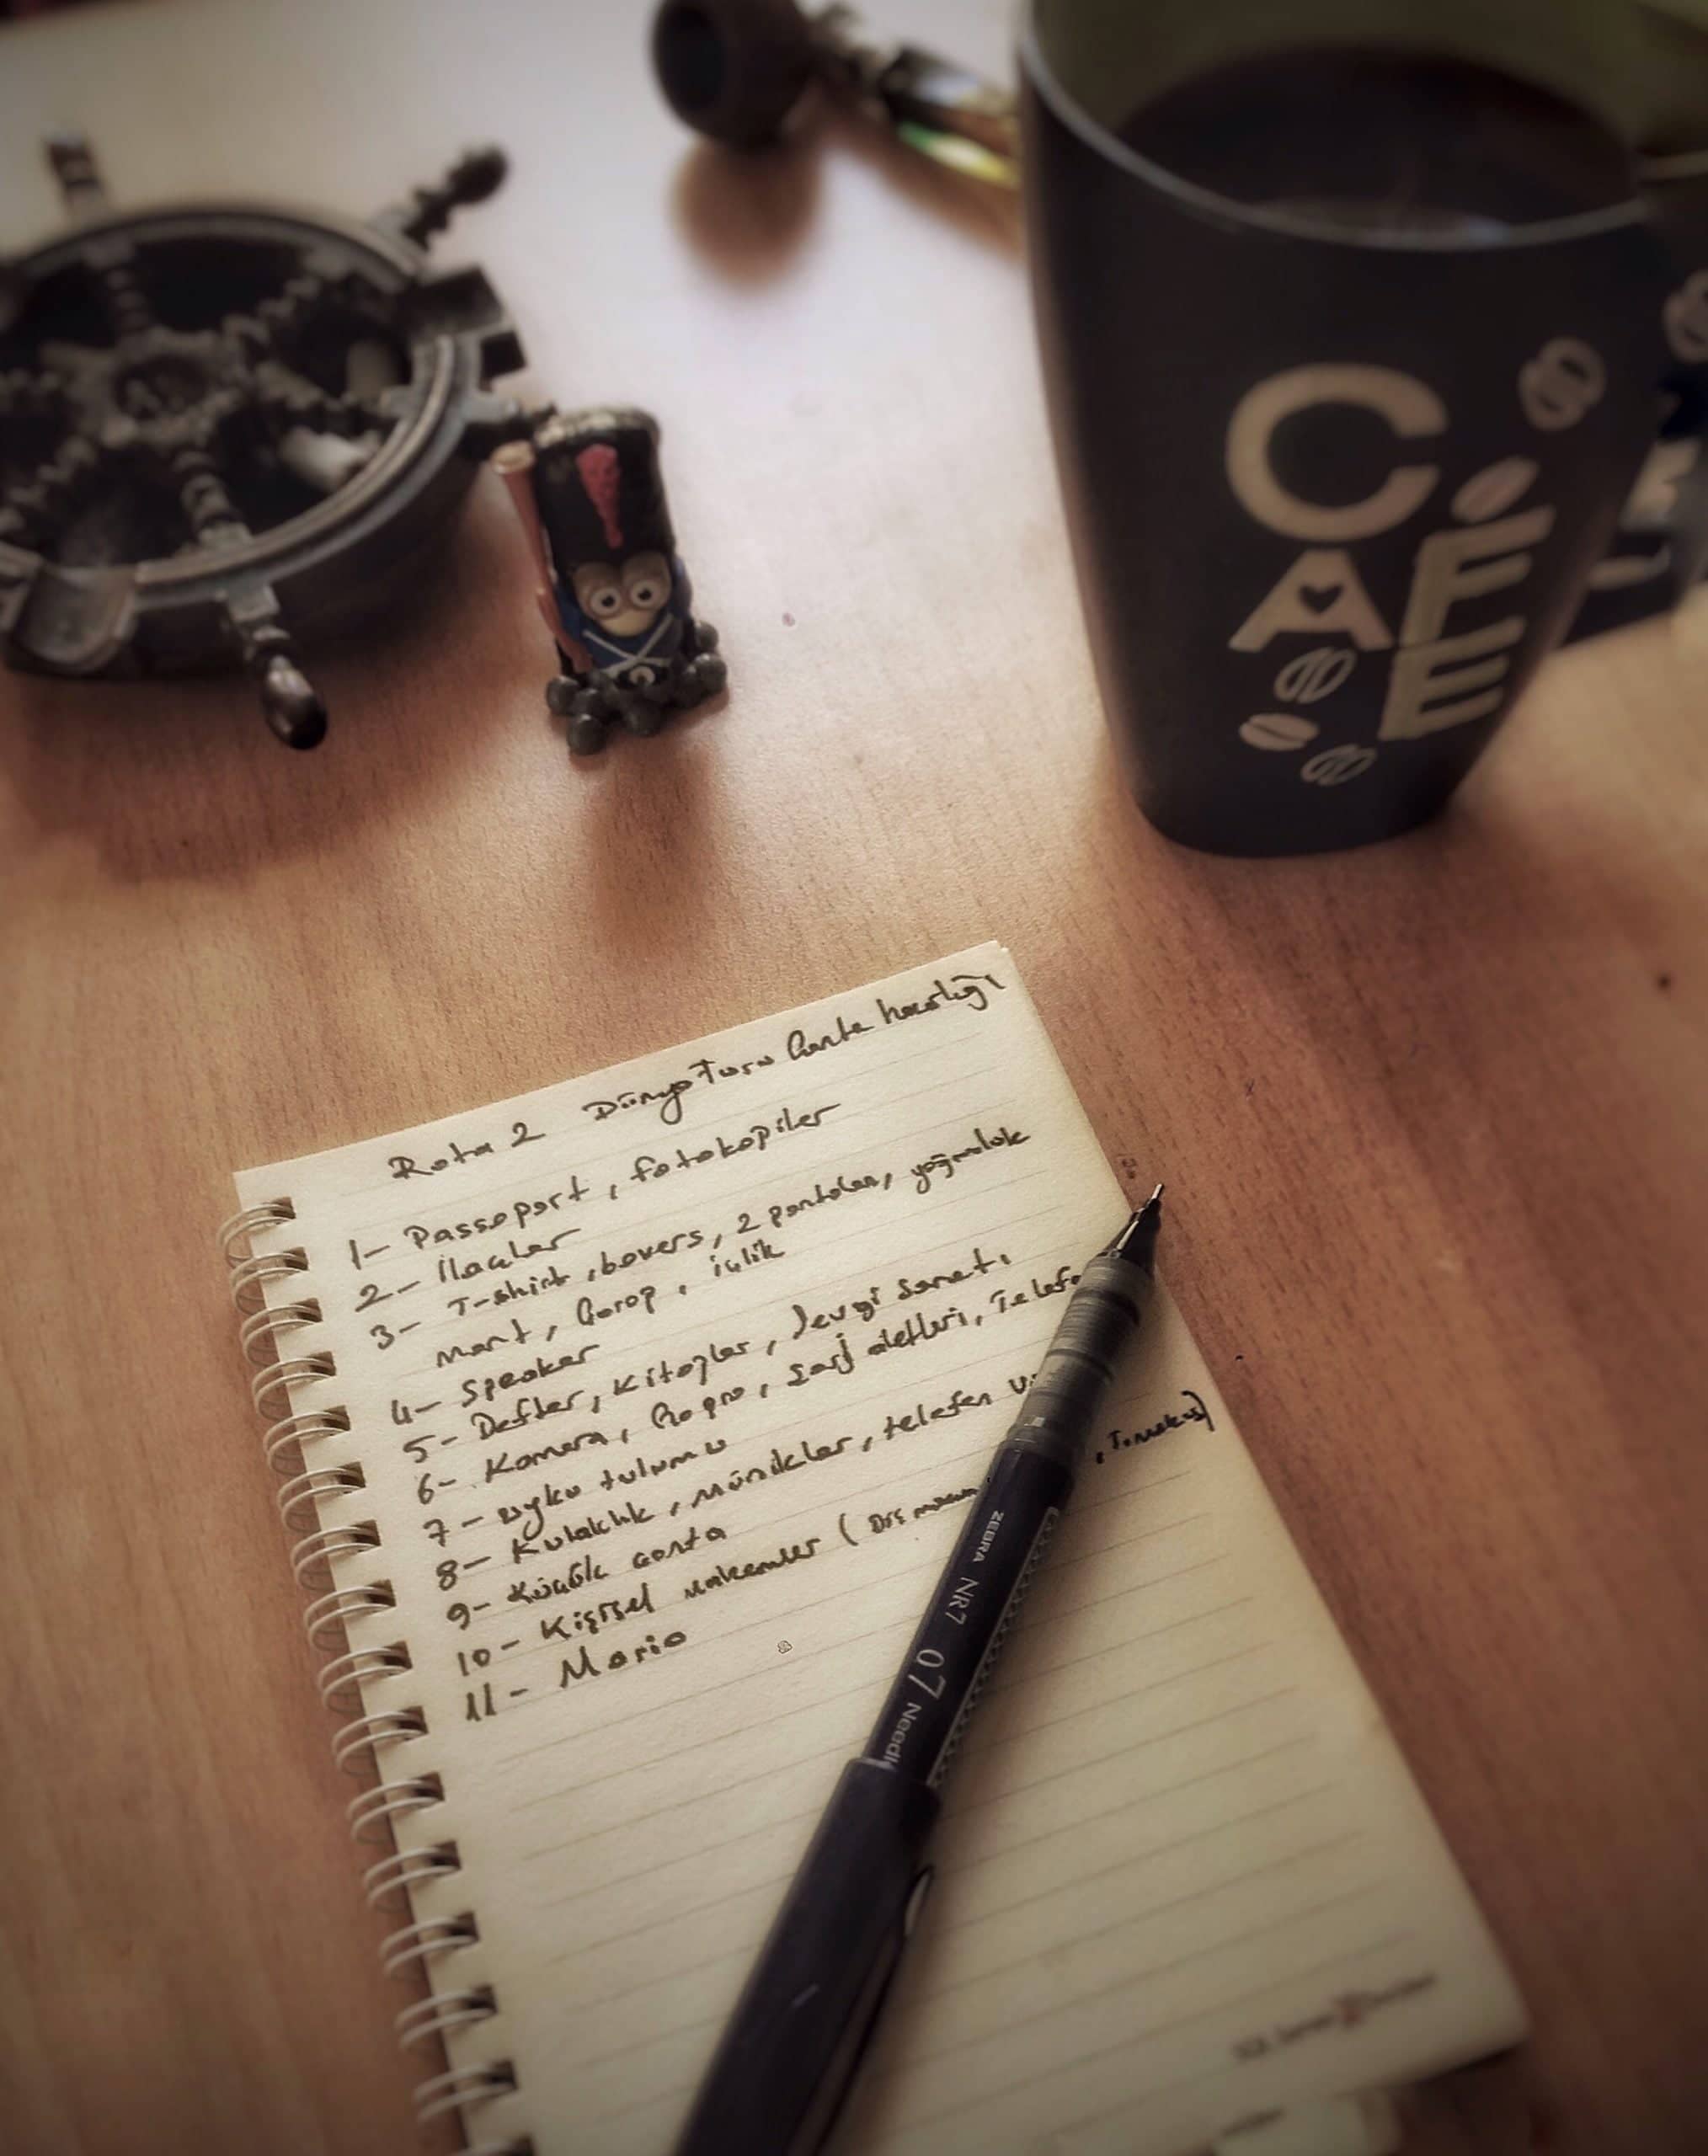 CAFE
Rota 2 Dünya Turu Çanta hazırlığı
1- Passaport, fotokopiler
2- ilaçlar
3- T-shirt, boxers, 2 pantolon, yağmurluk
mont, Çorap, içlik
4- Speaker
5- Defter, Kitaplar, Sevgi Sanatı
6- Kamera, Gopro, Şarj aletleri, Telefo
7- uyku tulumu
8- Kulaklık, müzikler, telefon
9- Küçük çanta
10- Kişisel malzemeler (Diş , Tırnakas)
11- Mario
ZEBRA NR7 0.7 Needl